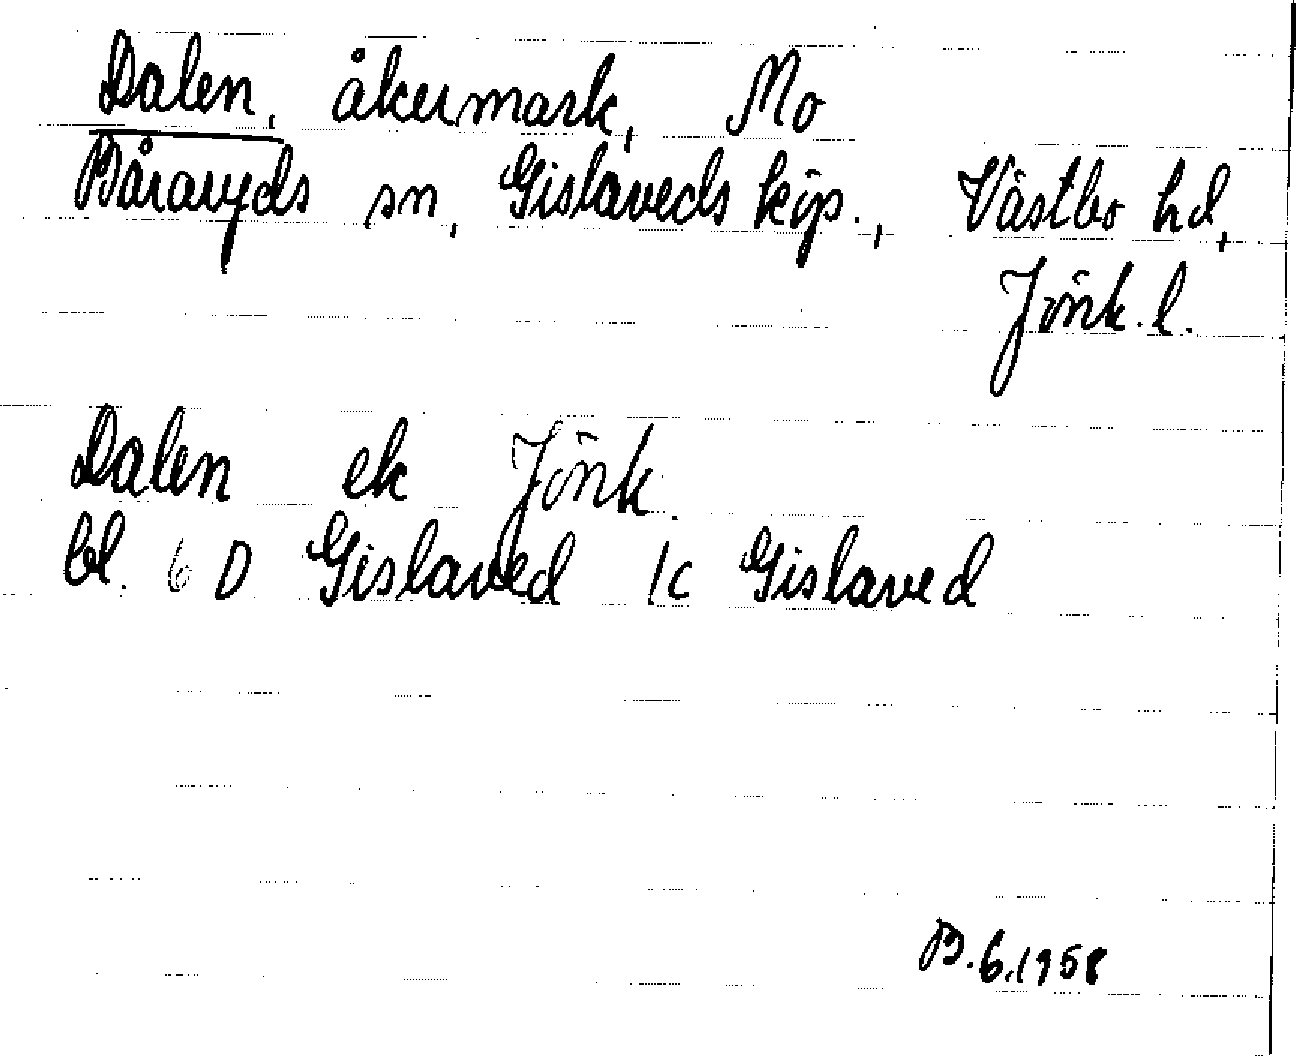 Dalen, åkermark, Mo
Båraryds sn, Gislaveds köp., Västbo hd,
Jönk. l.
Dalen ek Jönk.
bl. 6 D Gislaved 1c Gislaved
B.6.1958